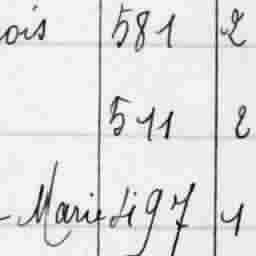 ois 581 2
511 2
- Marie 497 1